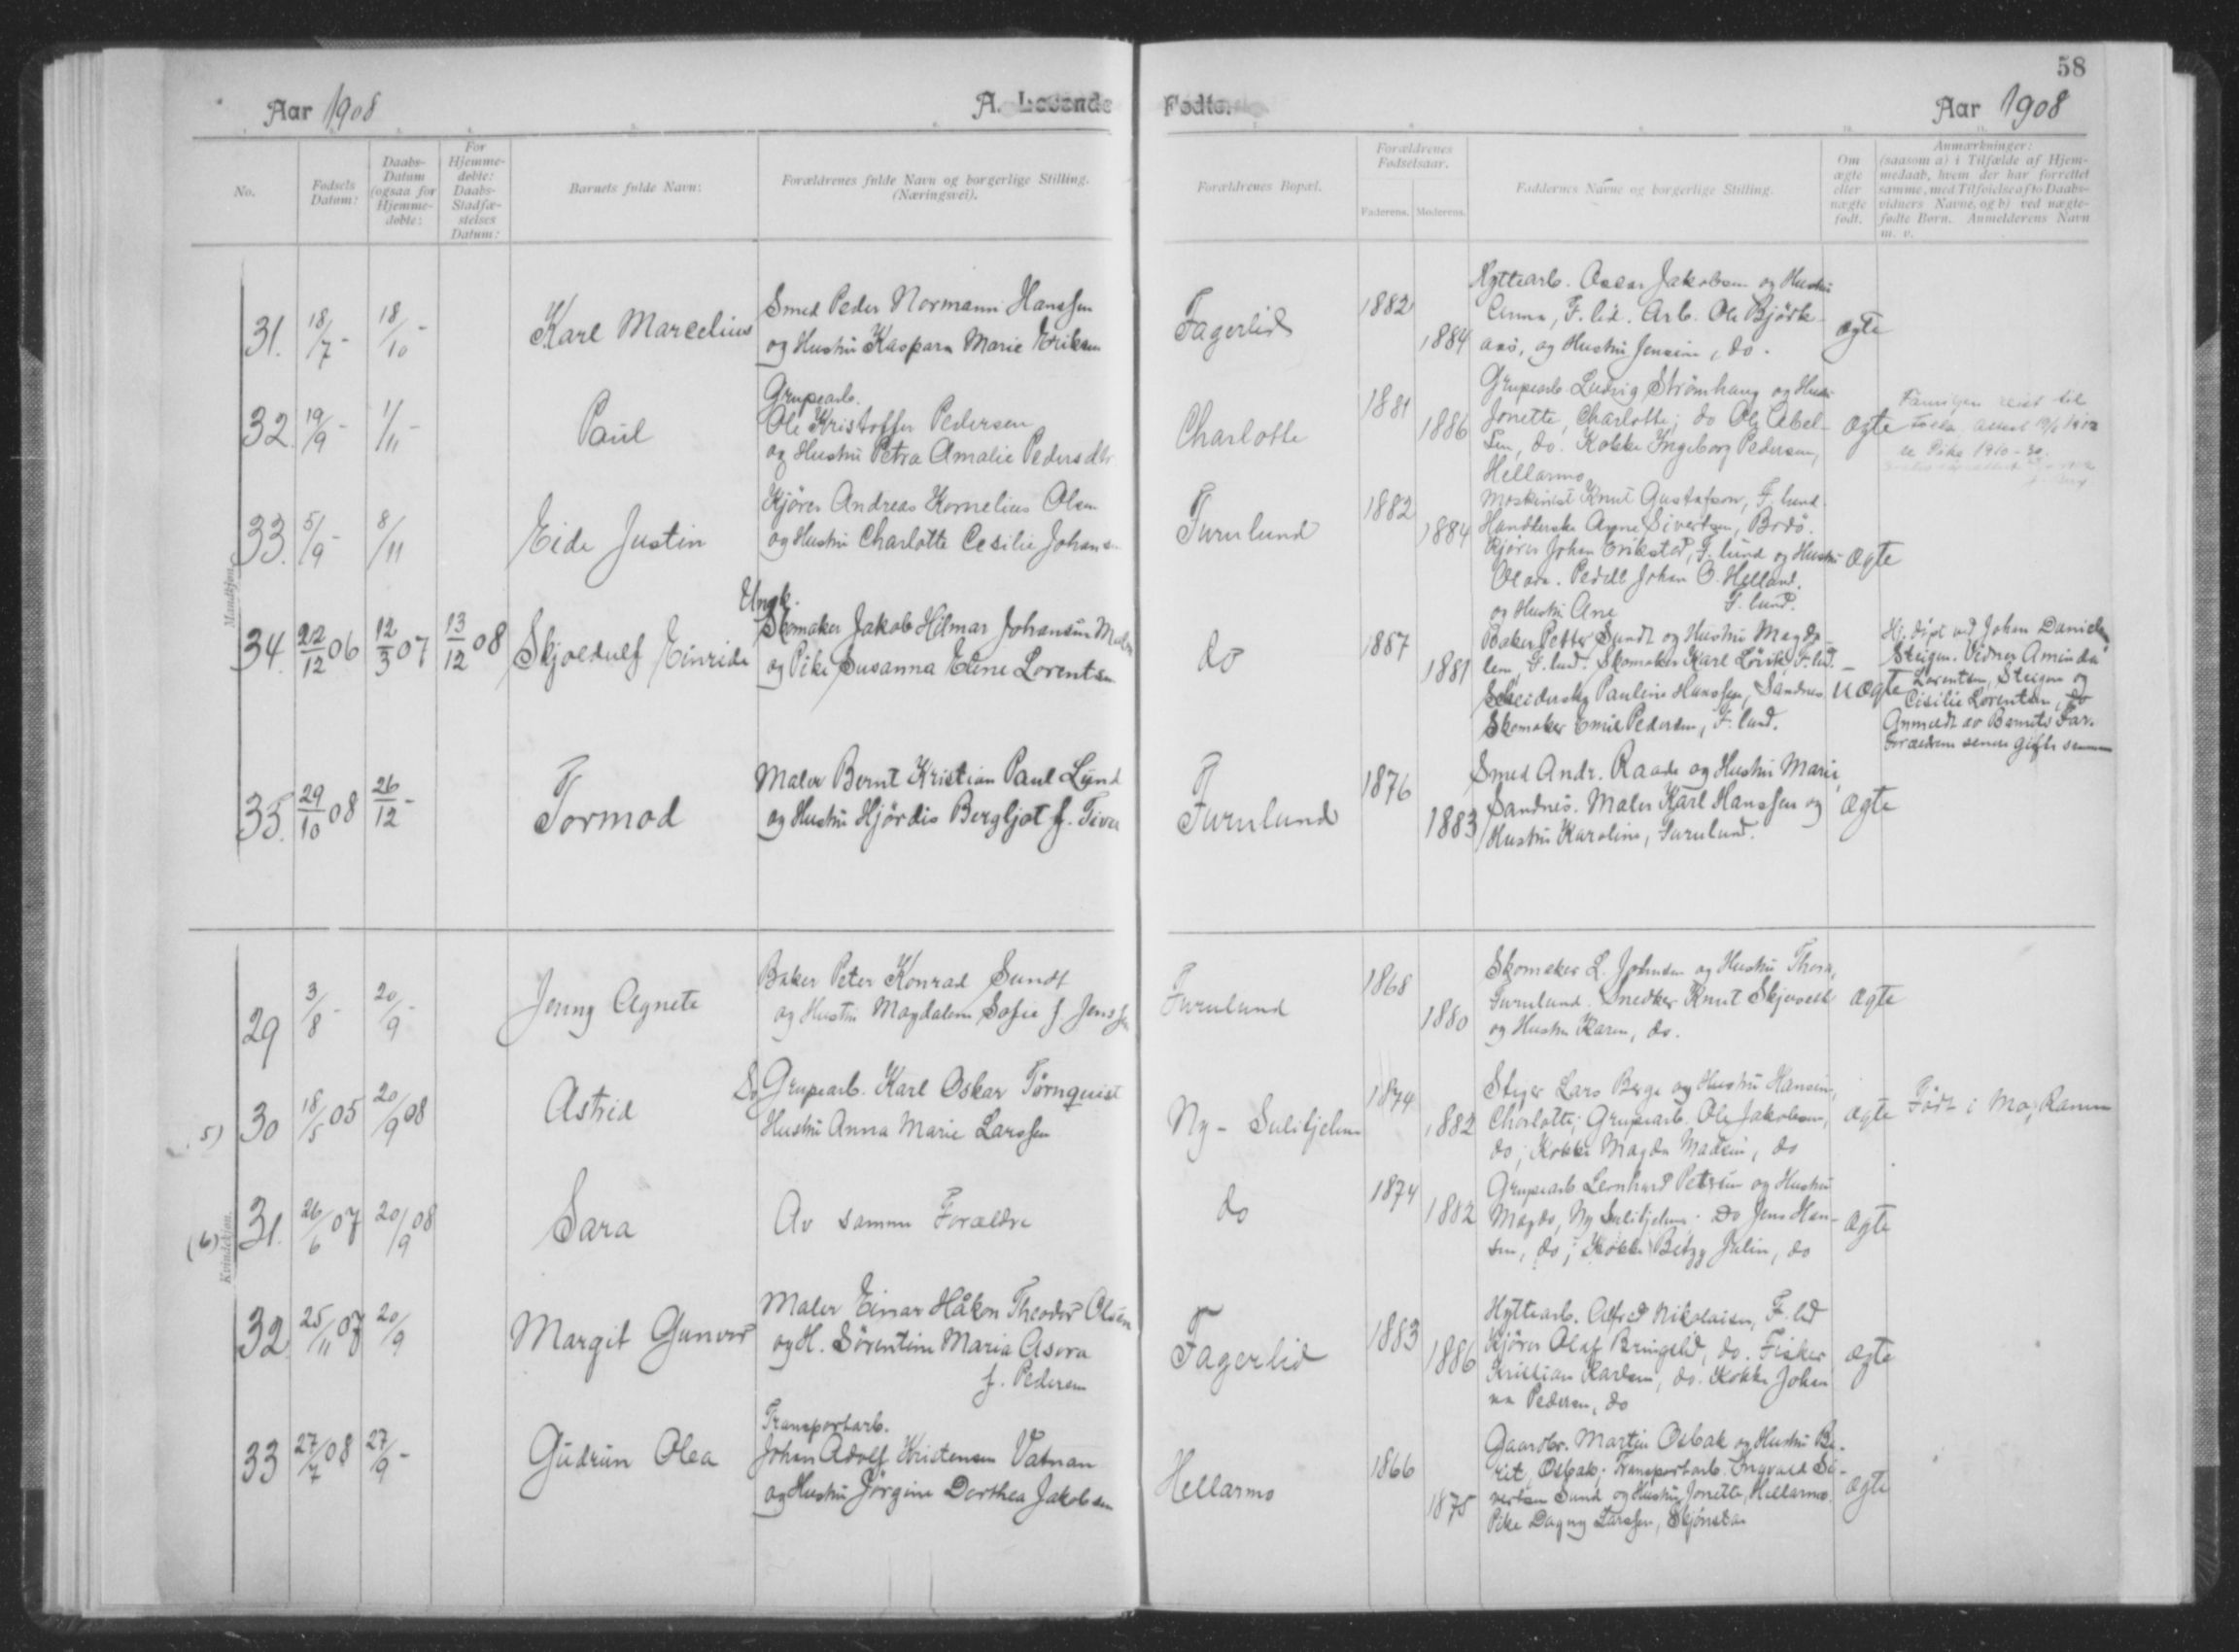 58
Aar 1908
A. Levende
Fødte.
Aar 1908
No.
Fødsels Datum:
Daabs-Datum (ogsaa for Hjemme-døbte:
For Hjemme-døbte: Daabs-Stadfæ-stelses Datum:
Barnets fulde Navn:
Forældrenes fulde Navn og borgerlige Stilling. (Næringsvei).
Forældrenes Bopæl.
Forældrenes Fødselsaar.
Faderens. Moderens.
Faddernes Navne og borgerlige Stilling.
Om ægte eller uægte født.
Anmærkninger:
(saasom a) i Tilfælde af Hjem-
medaab, hvem der har forrettet
samme, med Tilføielse af to Daabs-
vidners Navne, og b) ved uægte-
fødte Børn. Anmelderens Navn
m. v.
Mandkjøn.
31. 18/7 - 18/10 - Karl Marcelius
Smed Peder Normann Hanssen
og Hustru Kaspara Marie Eriksen
Fagerlid 1882 1884
Hyttearb. Oscar Jakobsen og Hustru
Anna, F. lid. Arb. Ole Bjørk-
aas, og Hustru Jensine, do.
ægte
32. 19/9 - 1/11 - Paul
Grupearb.
Ole Kristoffer Pedersen
og Hustru Petra Amalie Pedersdtr
Charlotte 1881 1886
Grupearb Ludvig Strømhaug og Hustru
Jonette, Charlotte; do Ole Abel-
sen, do. Kokke Ingeborg Pedersen,
Hellarmo
ægte
33. 5/9 - 8/11 Eide Justin
Kjører Andreas Kornelius Olsen
og Hustru Charlotte Cesilie Johansen
Furulund 1882 1884
Maskinist Knut Gustafson, F. lund.
Handlerske Anne Sivertsen, Bodø.
Kjører Johan Erikstad, F. lund og Hustru
Olava. Johan O. Helland
og Hustru Ane F. lund.
ægte
34. 22/12 06 12/3 07 13/12 08 Skjoldulf Einride
Ungk.
Skomaker Jakob Hilmar Johansen
og Pike Susanna Elene Lorentsen
do 1887 1881
Baker Petter Sundt og Hustru Magda-
lena, F. lund. Skomaker Karl Løvik, F. lid.
Pauline Hanssen, Sandnes
Skomaker Emil Pedersen, F. lund.
uægte
Hj. døpt ved Johan Danielsen
Steigen. Vidner Aminda
Lorentsen, Steigen og
Cisilie Lorentsen, do
Anmeldt av Barnets Far.
Forældrene senere gifte sammen
35. 29/10 08 26/12 - Tormod
Maler Bernt Kristian Paul Lund
og Hustru Hjørdis Bergljot f.
Furulund 1876 1883
Smed Andr. Raade og Hustru Marie,
Sandnes. Maler Karl Hanssen og
Hustru Karoline, Furulund.
ægte
Kvindekjøn.
29 3/8 - 20/9 - Jenny Agnete
Baker Peter Konrad Sundt
og Hustru Magdalene Sofie f Jenssen
Furulund 1868 1880
Skomaker L. Johnsen og Hustru Thora,
Furulund. Snedker Knut
og Hustru Karen, do.
ægte
5) 30 18/5 05 20/9 08 Astrid
Grupearb. Karl Oskar Törnquist
Hustru Anna Marie Larssen
Ny-Sulitjelma 1874 1882
Stiger Lars Berge og Hustru Hansine,
Charlotte; Grupearb. Ole Jakobsen,
do; Kokke Magda Madsen, do
ægte
Født i Mo, Ranen
(6) 31. 26/6 07 20/9 08 Sara
Av samme Forældre
do 1874 1882
Grupearb Lernhard Petersen og Hustru
Magda, Ny Sulitjelma. do Jens Han-
sen, do; Kokke Betzy Julin, do
ægte
32. 25/11 07 20/9 Margit Gunvor
Maler Einar Håkon Theodor Olsen
og H. Sørentine Maria Asora
f. Pedersen
Fagerlid 1883 1886
Hyttearb. Alfred Nikolaisen, F. lid
Kjører Olaf Bringslid, do. Fisker
Kristian Karlsen, do. Kokke Johan
na Pedersen, do
ægte
33 27/7 08 27/9 - Gudrun Olea
Transportarb.
Johan Adolf Kristensen Vatnan
og Hustru Jørgine Dorthea Jakobsen
Hellarmo 1866 1875
Gaardbr. Martin Osbak og Hustru Be-
rit, Osbak; Transportarb. Ingvald Si-
vertsen Sund og Hustru Jonette, Hellarmo.
Pike Dagny Larssen, Skjønstaa
ægte